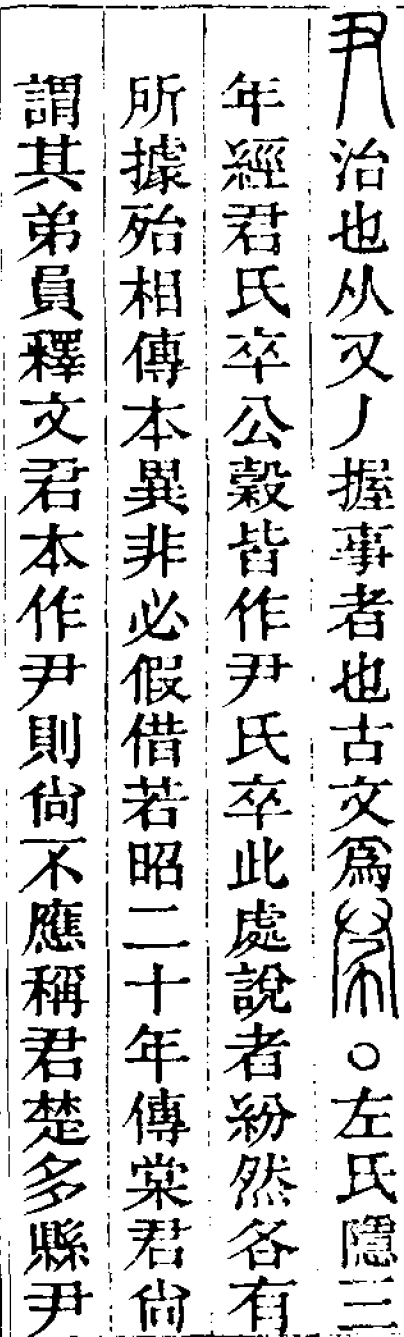 尹治也从又丿握事者也古文爲○左氏隱三
年經君氏卒公穀皆作尹氏卒此處說者紛然各有
所據殆相傳本異非必假借若昭二十年傳棠君尙
謂其弟員釋文君本作尹則尙不應稱君楚多縣尹